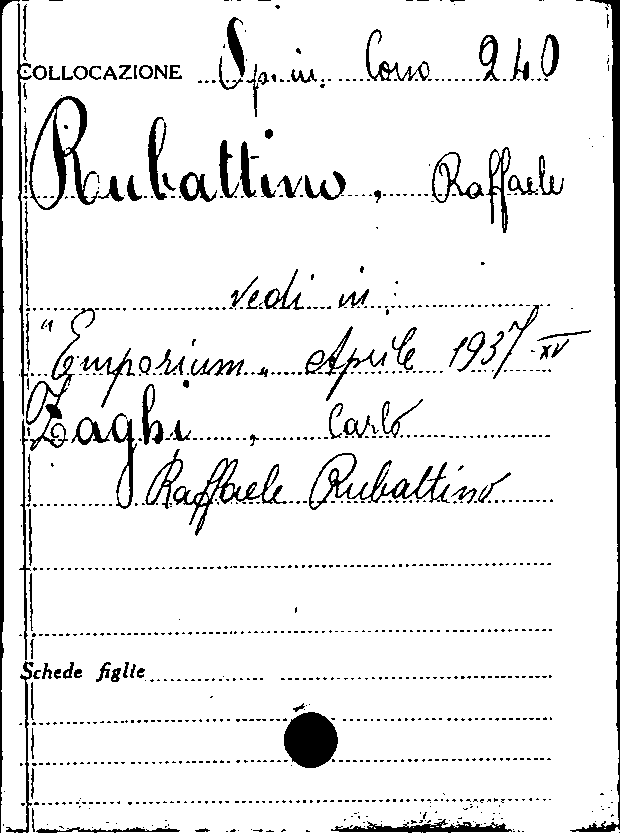 COLLOCAZIONE Sp. in. Corso 240
Rubattino, Raffaele
vedi in:
"Emporium" Aprile 1937-XV
Zaghi, Carlo
Raffaele Rubattino
Schede figlie